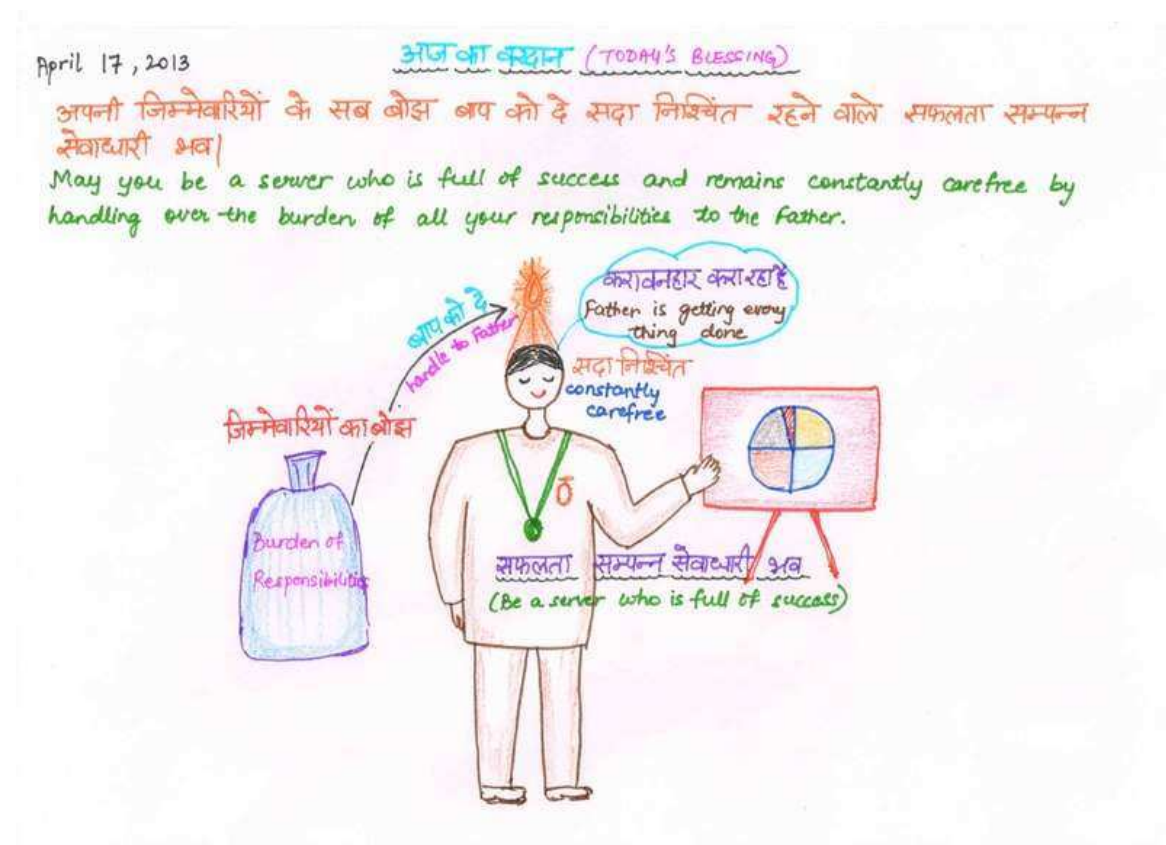 April 17, 2013
आज का वरदान (TODAY'S BLESSING)
अपनी जिम्मेवारियों के सब बोझ बाप को दे सदा निश्चिंत रहने वाले सफलता सम्पन्न
सेवाधारी भव।
May you be a server who is full of success and remains constantly carefree by
handling over the burden of all your responsibilities to the Father.
करावनहार करा रहा है
Father is getting every
thing done
बाप को दे
handle to Father
सदा निश्चिंत
constantly
carefree
जिम्मेवारियों का बोझ
Burden of
Responsibilities
सफलता सम्पन्न सेवाधारी भव
(Be a server who is full of success)